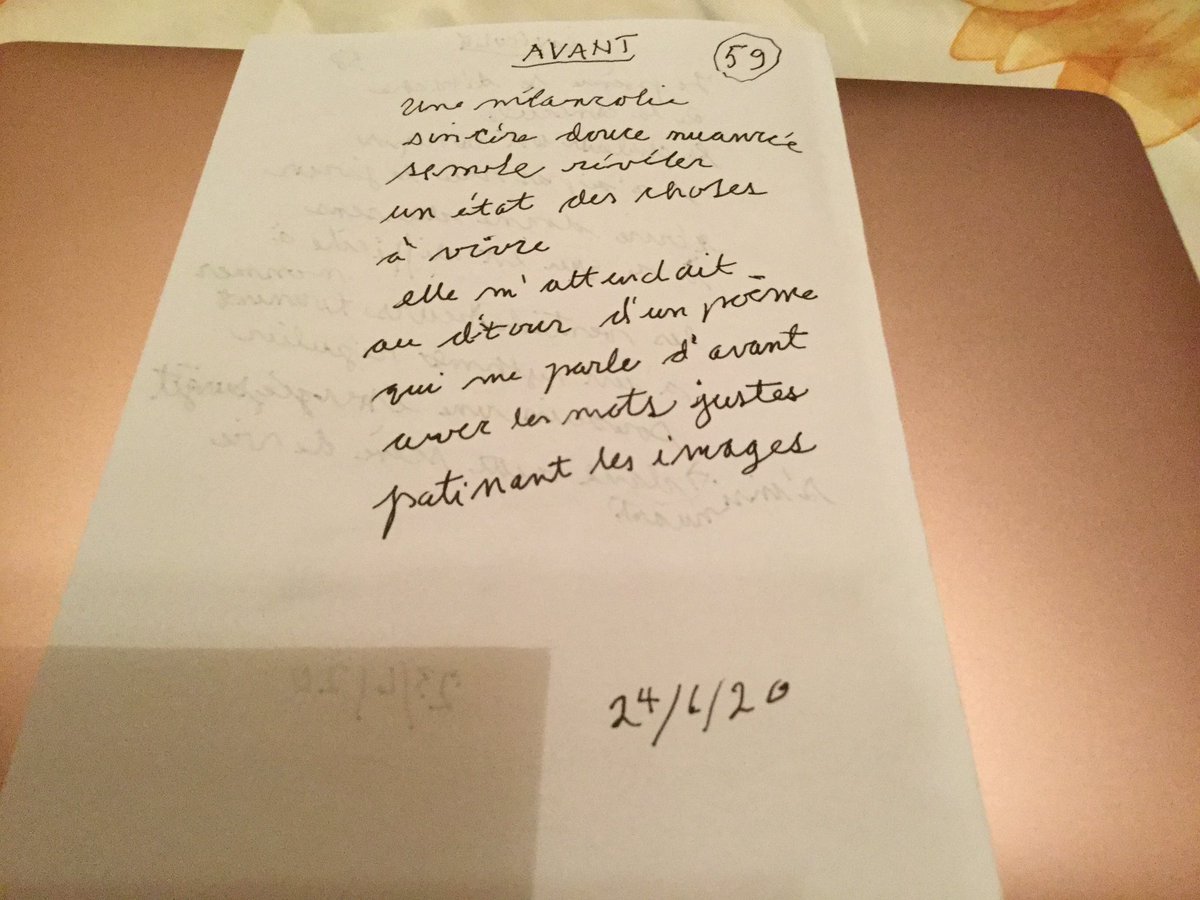 AVANT
59
une mélancolie
sincère douce nuancée
semble révéler
un état des choses
à vivre
elle m'attendait
au détour d'un poème
qui me parle d'avant
avec les mots justes
patinant les images
24/6/20